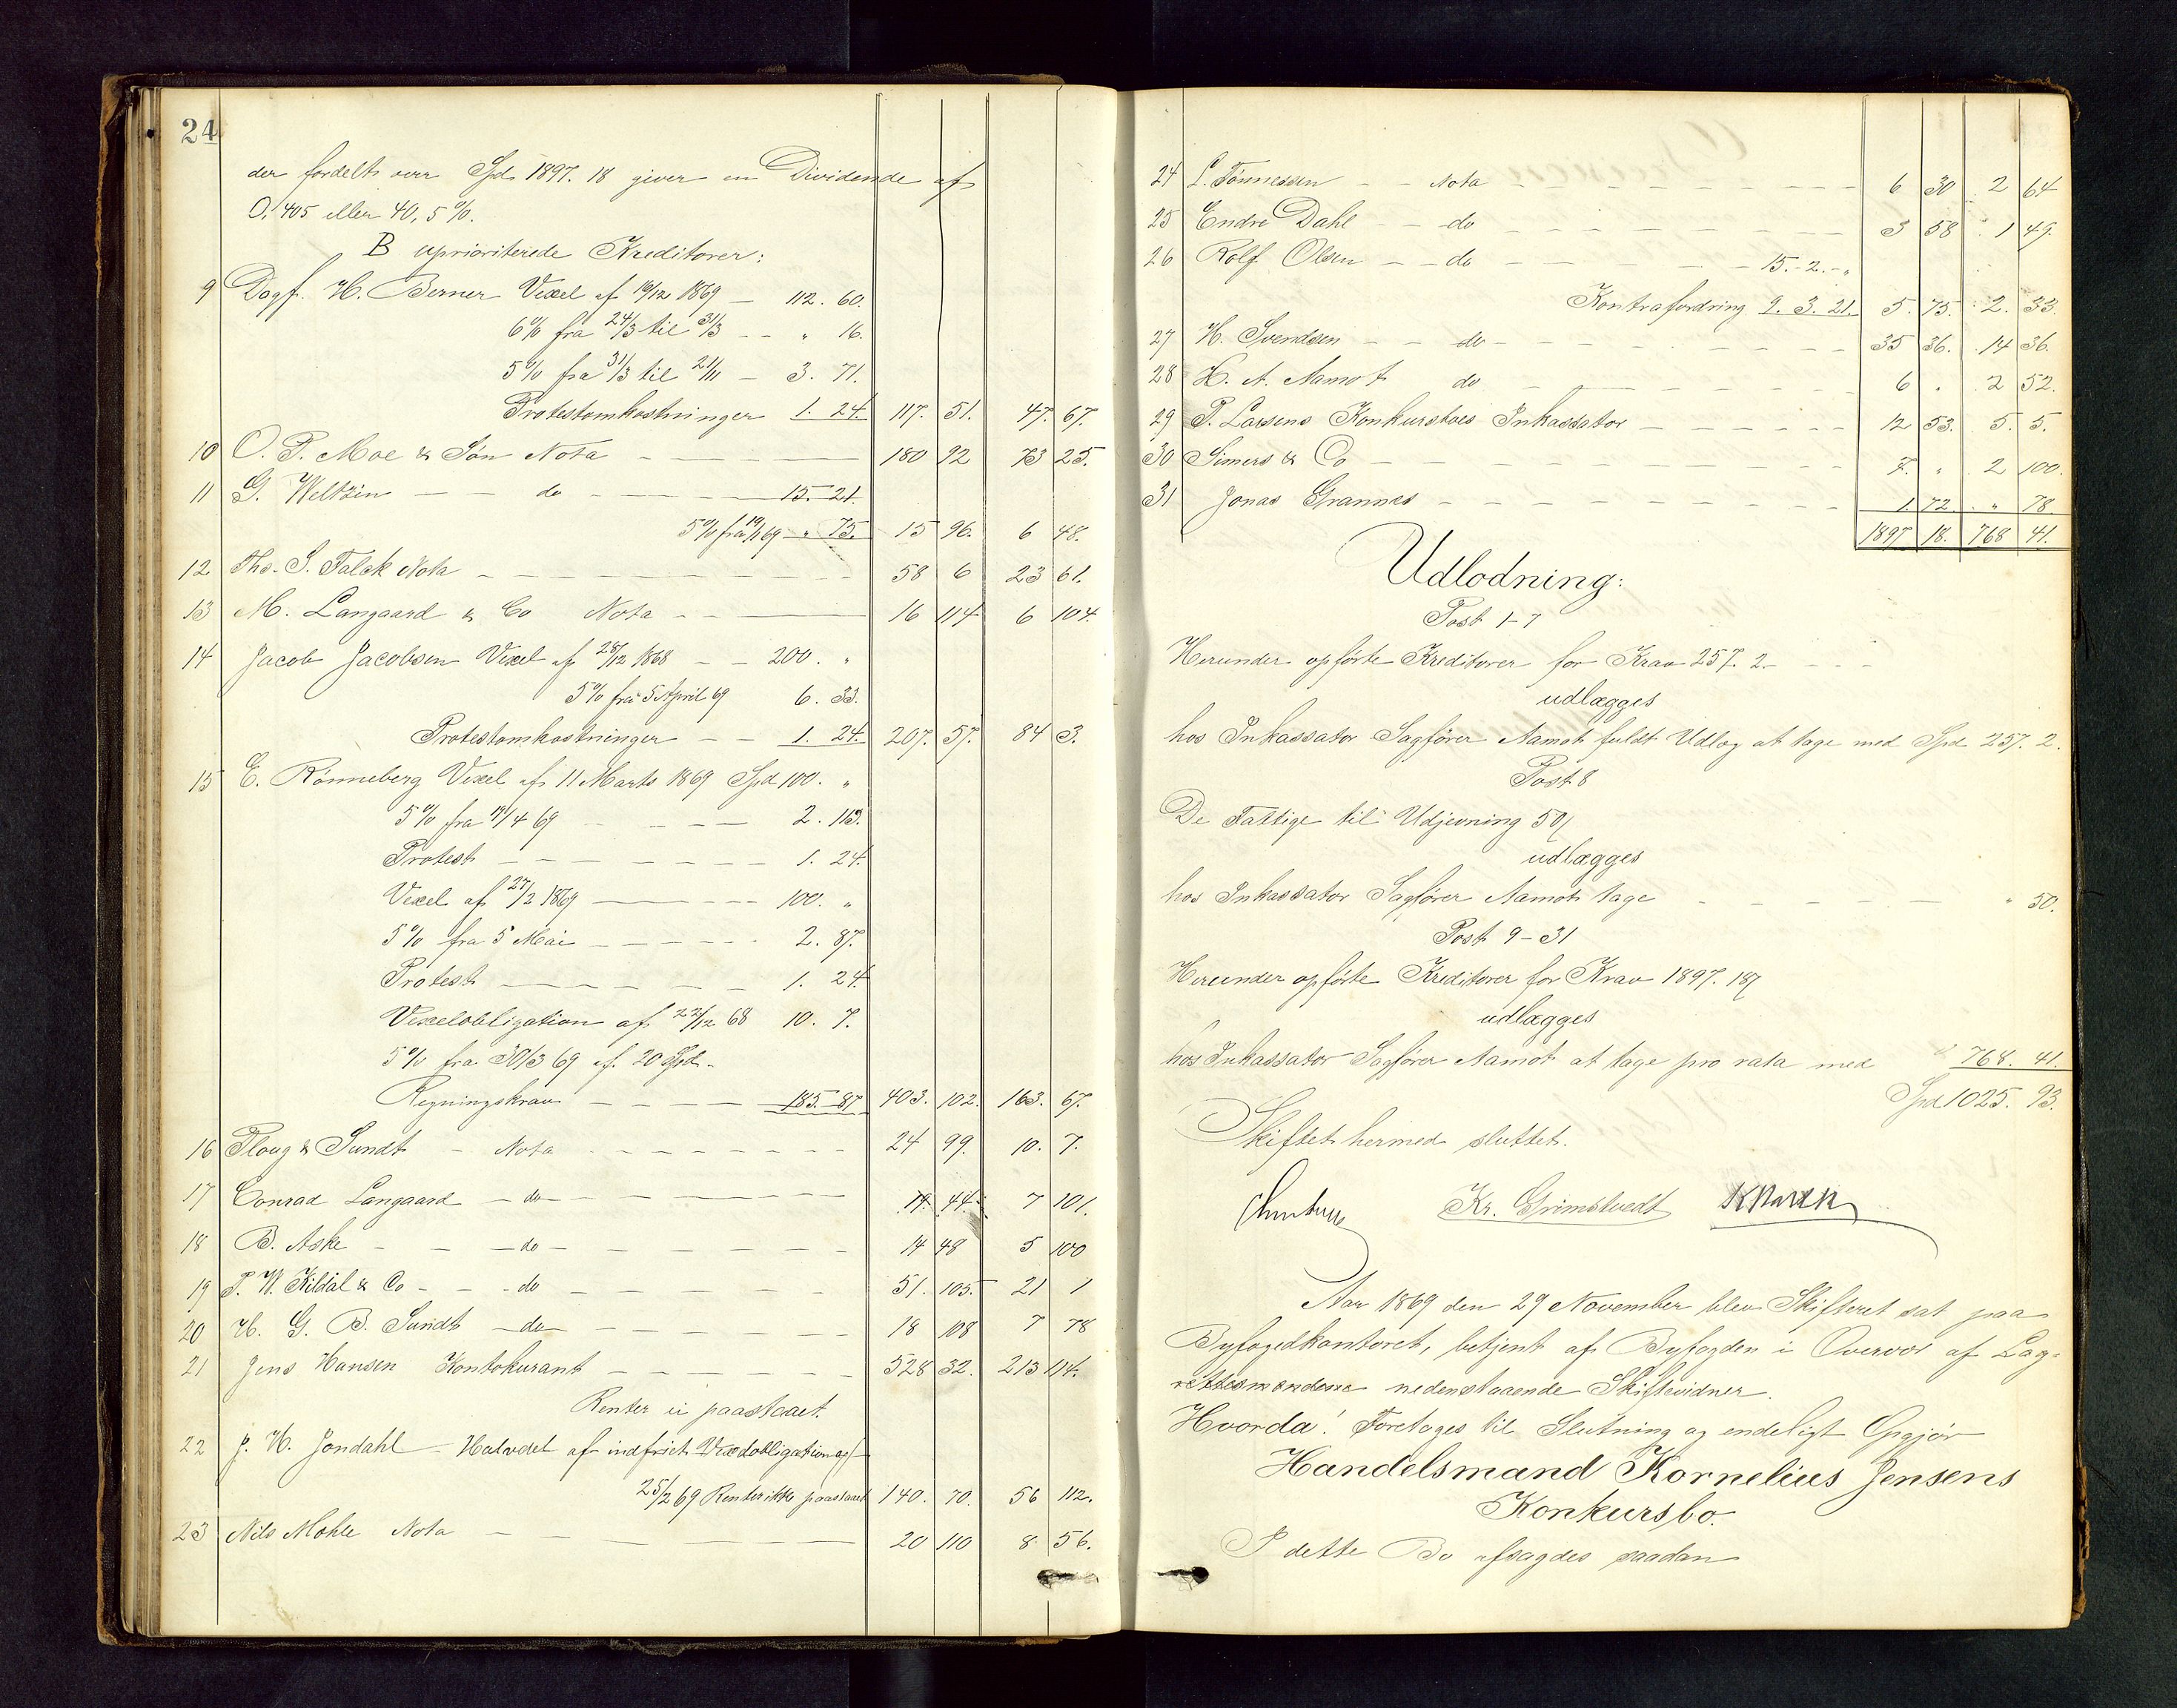 24
der fordelt over Spd 1897. 18 giver en Dividende af
0,405 eller 40,5 %.
B uprioriterede Kreditorer:
9 Dogf. H. Berner Vexel af 19/12 1869 — 112. 60.
6% fra 24/3 til 31/3 - - " 16.
5% fra 31/3 til 21/11 — 3. 71.
Protestomkostninger 1. 24. 117. 51. 47. 67.
10 O. P. Moe & Søn Nota — 180 92 73 25.
11 G. Weltzin — do — 15. 21.
5% fra 19/11 69 — " 75. 15 96. 6 48.
12 Ths. S. Falck Nota — 58 6 23 61.
13 M. Langaard & Co Nota — 16 114 6 104.
14 Jacob Jacobsen Vexel af 28/12 1868 - - 200. "
5% fra 5 April 69 6. 33.
Protestomkostninger - - 1. 24. 207. 57. 84 3.
15 E. Rønneberg Vexel af 11 Marts 1869 Spd 100. "
5% fra 14/4 69 — 2. 113.
Protest — 1. 24.
Vexel af 27/2 1869 — 100. "
5% fra 5 Mai — 2. 87.
Protest — 1. 24.
Vexelobligation af 22/12 68 10. 7.
5% fra 30/3 69 af 20 Spd. -
Regningskrav — 185. 87 403. 102. 163. 67.
16 Ploug & Sundt - Nota — 24 99. 10. 7.
17 Conrad Langaard — do — 19. 44. 7 101.
18 B. Aske - - do — 14 48 5 100
19 P. W. Kildal & Co - - do — 51. 105. 21 1
20 H. G. B. Sundt — do — 18 108 7 78
21 Jens Hansen Kontokurant — 528 32. 213 114.
Renter ei paastaaet.
22 J. H. Jondahl - Halvdel af indfriet Vexelobligation af
25/2 69 Renter ikke paastaaet 140. 70. 56 112.
23 Nils Mohle Nota — 20 110 8. 56.
24 L. Tønnessen - - Nota — 6 30 2 64
25 Endre Dahl - - do — 3 58 1 49.
26 Rolf Olsen — do — 15. - 2. - "
Kontrafordring 9. 3. 21. 5. 75. 2. 33.
27 H. Svendsen - - do — 35 36. 14 36.
28 H. A. Aamot do — 6 " 2 52.
29 P. Larsens Konkursboes Inkassator — 12 53. 5. 5.
30 Simers & Co — 7. " 2 100.
31 Jonas Grannes — 1. 72. " 78
1897 18. 768 41.
Udlodning:
Post 1-7
Herunder opførte Kreditorer for Krav 257. 2 -
udlægges
hos Inkassator Sagfører Aamot fuldt Udlæg at tage med Spd 257. 2.
Post 8
De Fattige til Udjevning 50/
udlægges
hos Inkassator Sagfører Aamot tage — " 50.
Post 9-31
Herunder opførte Kreditorer for Krav 1897. 18/
udlægges
hos Inkassator Sagfører Aamot at tage pro rata med " 768. 41.
Spd 1025. 93.
Skiftet hermed sluttet.
Kr. Grimstvedt
Aar 1869 den 29 November blev Skifteret sat paa
Byfogedkontoret, betjent af Byfogden i Overvær af Lag-
rettesmendene nedenstaaende Skiftevidner.
Hvorda! Foretoges til Slutning og endeligt Opgjør
Handelsmand Kornelius Jensens
Konkursbo.
I dette Bo afsagdes saadan